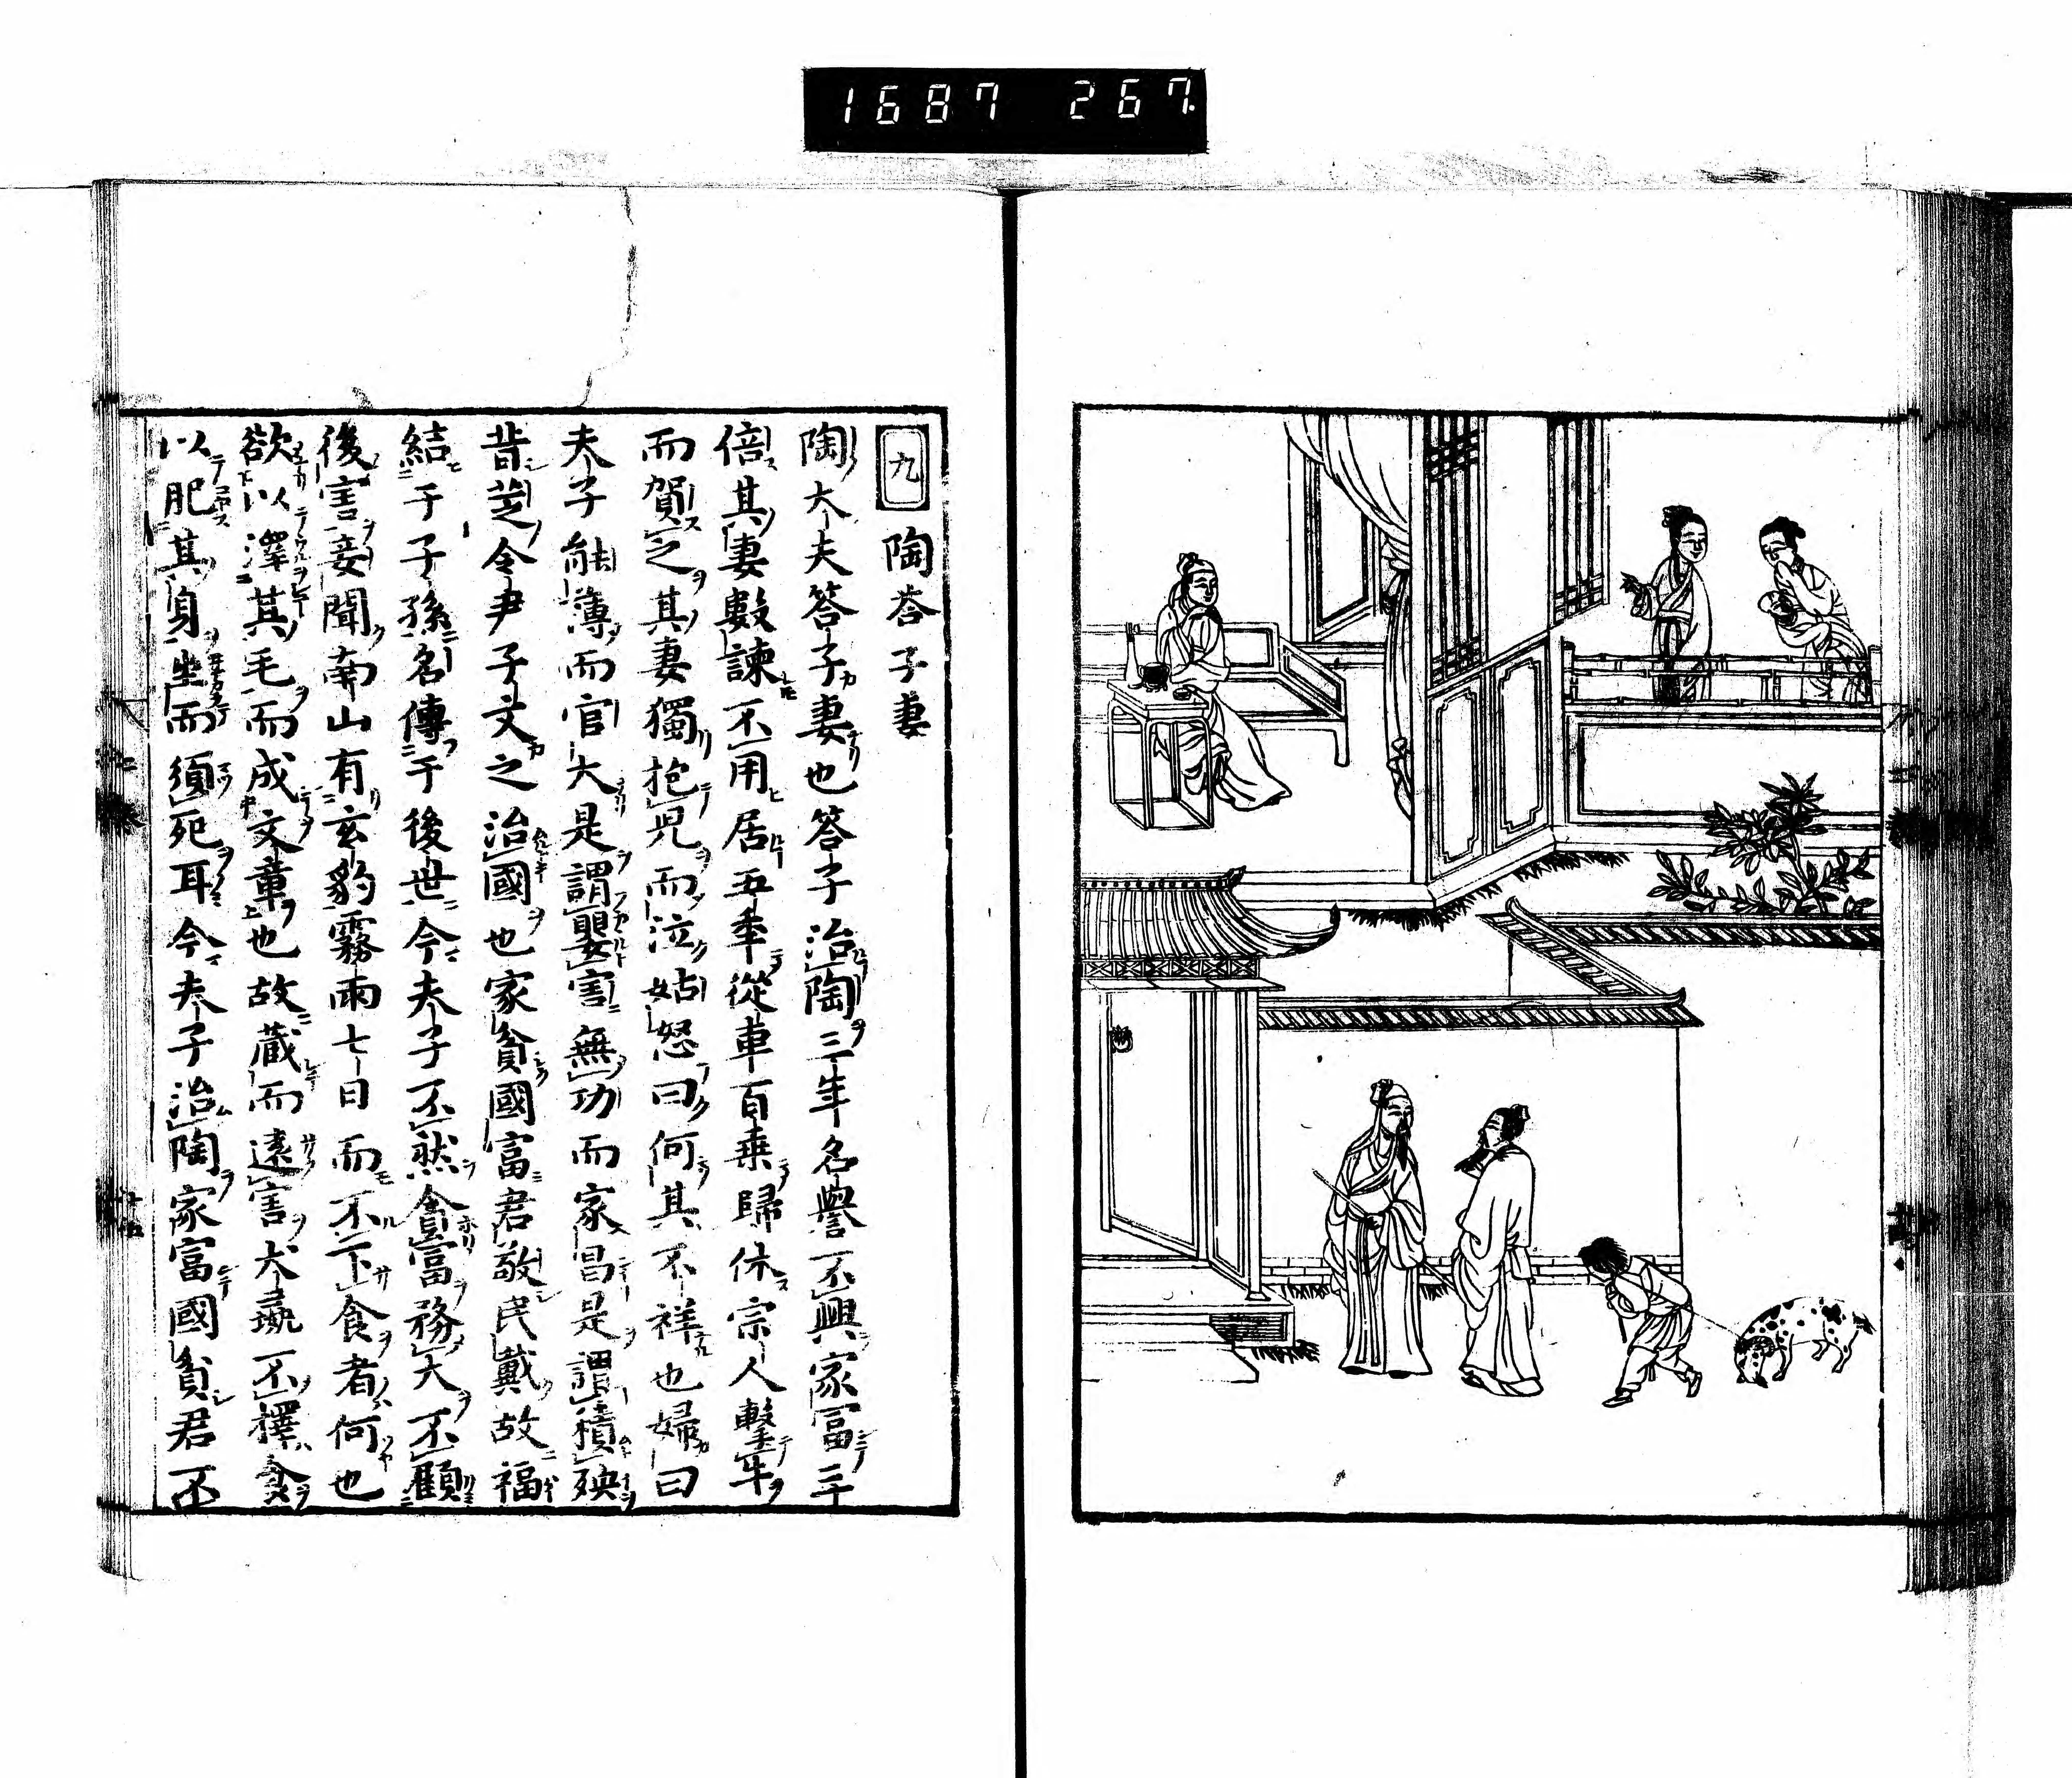 1687 267.
九 陶荅子妻
陶大夫答子妻也答子治陶三年名譽不興家冨三
倍其妻數諫不用居五年從車百乗歸休宗人擊牛
而賀之其妻獨抱兒而泣姑怒曰何其不祥也婦曰
夫子能薄而官大是謂嬰害無功而家昌是謂積殃
昔楚令尹子文之治國也家貧國富君敬民戴故福
結于子孫名傳于後世今夫子不然貪冨務大不顧
後害妾聞南山有玄豹霧雨七日而不下食者何也
欲以澤其毛而成文章也故蔵而遠害犬彘不擇食
以肥其身坐而須死耳今夫子治陶家富國貧君不